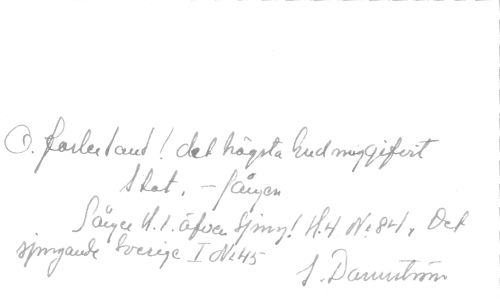 O, fosterland! det högsta Gud mig gifvit
Skat. — sången
Sånger H. 1. äfven Sjung! H. 4 No 84, Det
sjungande Sverige I No 45
I. Dannström